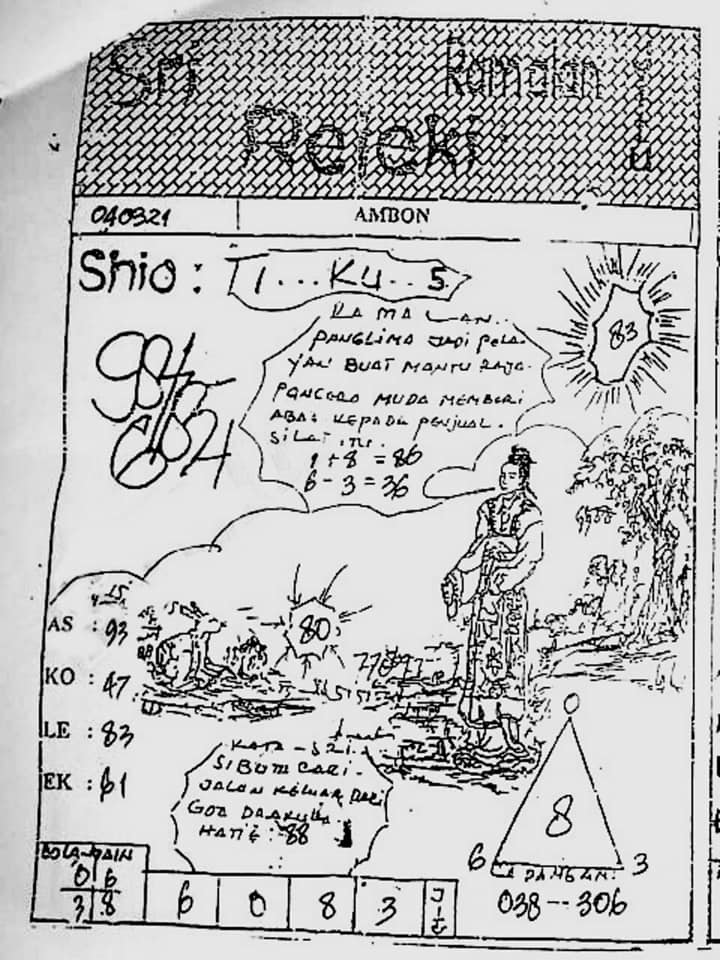 Sri
Ramalan
Rejeki
Jitu
040321
AMBON
Shio : TI...KU..S
RAMALAN..
PANGLIMA JADI PELA-
YAN BUAT MANTU RAJA.
MUDA MEMBERI
KEPADA PENJUAL.
SILAT ITU.
1 + 8 = 86
6 - 3 = 36
83
80
AS : 93
KO : 47
LE : 83
EK : 61
KATA - SZI.
SIBUTA CARI.
JALAN KELUAR DARI
GOA
HATI2 : 88
8
6
3
LADANGAN:
038--306
BOLA-MAIN
0 6
3 8
6 0 8 3 JITU